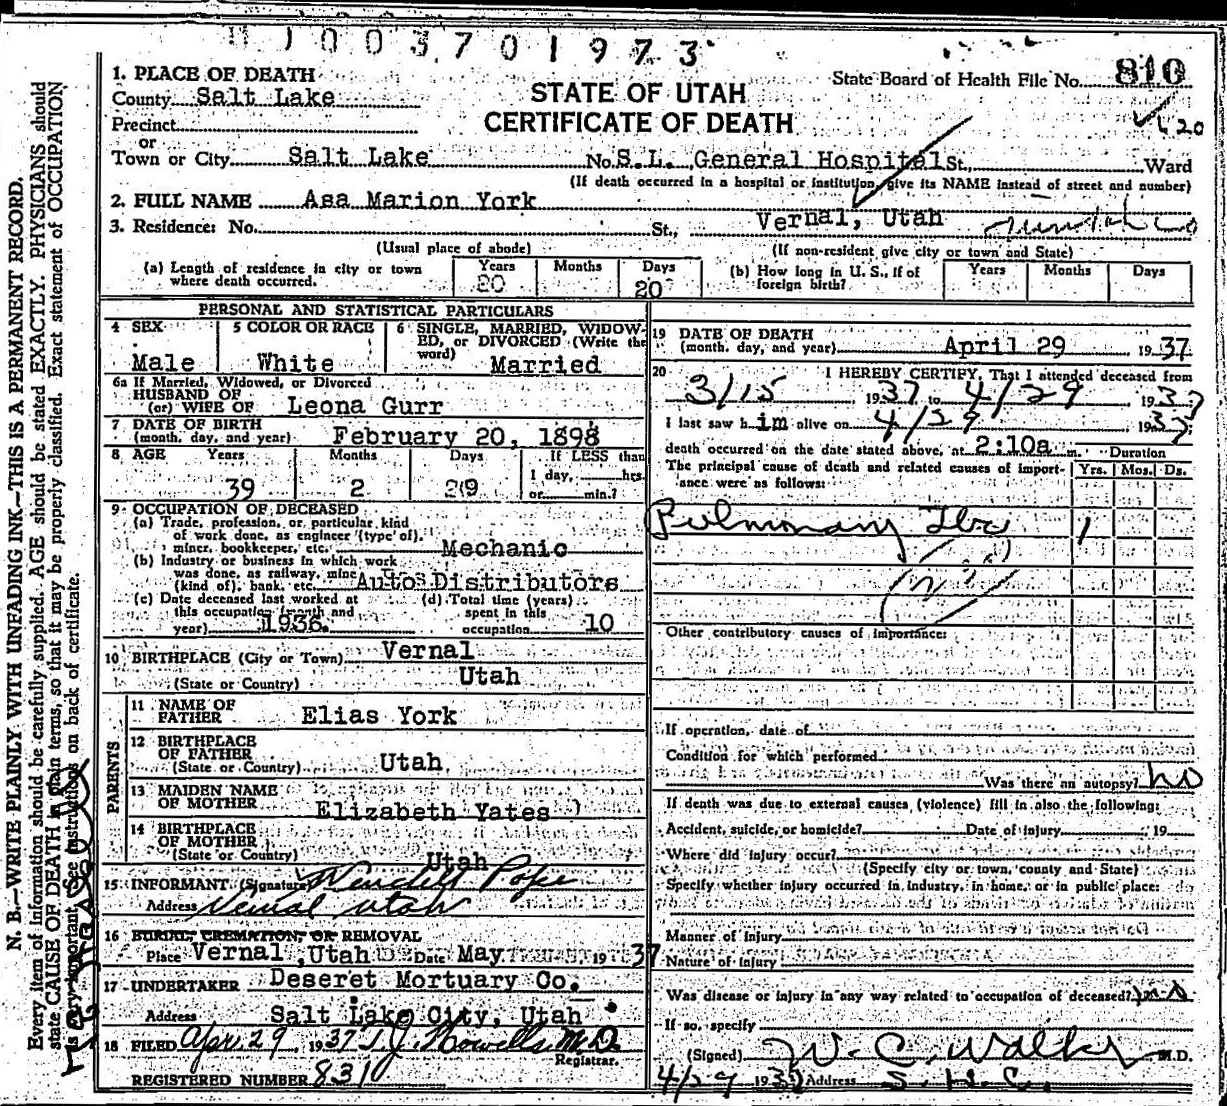 1003701973
1. PLACE OF DEATH
State Board of Health File No. 810
County Salt Lake
STATE OF UTAH
Precinct
CERTIFICATE OF DEATH
20
or
Town or City Salt Lake No. S.L. General Hospital St., Ward
(If death occurred in a hospital or institution, give its NAME instead of street and number)
2. FULL NAME Asa Marion York
3. Residence: No. St., Vernal, Utah
(Usual place of abode) (If non-resident give city or town and State)
(a) Length of residence in city or town where death occurred. Years 20 Months Days 20
(b) How long in U. S., if of foreign birth? Years Months Days
PERSONAL AND STATISTICAL PARTICULARS
4 SEX Male
5 COLOR OR RACE White
6 SINGLE, MARRIED, WIDOWED, or DIVORCED (Write the word) Married
6a If Married, Widowed, or Divorced
HUSBAND OF
(or) WIFE OF Leona Gurr
7 DATE OF BIRTH
(month, day, and year) February 20, 1898
8 AGE Years 39 Months 2 Days 29 If LESS than
1 day, hrs.
or min.?
9 OCCUPATION OF DECEASED
(a) Trade, profession, or particular kind
of work done, as engineer (type of),
miner, bookkeeper, etc. Mechanic
(b) Industry or business in which work
was done, as railway, mine
(kind of), bank, etc. Auto Distributors
(c) Date deceased last worked at
this occupation (month and
year) 1936.
(d) Total time (years)
spent in this
occupation 10
10 BIRTHPLACE (City or Town) Vernal
(State or Country) Utah
PARENTS
11 NAME OF
FATHER Elias York
12 BIRTHPLACE
OF FATHER
(State or Country) Utah
13 MAIDEN NAME
OF MOTHER Elizabeth Yates
14 BIRTHPLACE
OF MOTHER
(State or Country) Utah
15 INFORMANT (Signature) Wendell Pope
Address Vernal Utah
16 BURIAL, CREMATION, OR REMOVAL
Place Vernal, Utah Date May 1937
17 UNDERTAKER Deseret Mortuary Co.
Address Salt Lake City, Utah
18 FILED Apr. 29, 1937 T.J. Howells M.D.
Registrar.
REGISTERED NUMBER 831
19 DATE OF DEATH
(month, day, and year) April 29 1937
20 I HEREBY CERTIFY, That I attended deceased from
3/15 1937 to 4/29 1937
I last saw him alive on 4/29 1937
death occurred on the date stated above, at 2:10a m. Duration
The principal cause of death and related causes of importance were as follows: Yrs. Mos. Ds.
Pulmonary Tbc 1
Other contributory causes of importance:
If operation, date of
Condition for which performed
Was there an autopsy? no
If death was due to external causes (violence) fill in also the following:
Accident, suicide, or homicide? Date of injury 19
Where did injury occur?
(Specify city or town, county and State)
Specify whether injury occurred in industry, in home, or in public place:
Manner of Injury
Nature of injury
Was disease or injury in any way related to occupation of deceased? no
If so, specify
(Signed) W. C. Walker M.D.
4/29 1937 Address S. H. C.
N. B.—WRITE PLAINLY WITH UNFADING INK—THIS IS A PERMANENT RECORD.
Every item of information should be carefully supplied. AGE should be stated EXACTLY. PHYSICIANS should
state CAUSE OF DEATH in plain terms, so that it may be properly classified. Exact statement of OCCUPATION
is very important. See instructions on back of certificate.